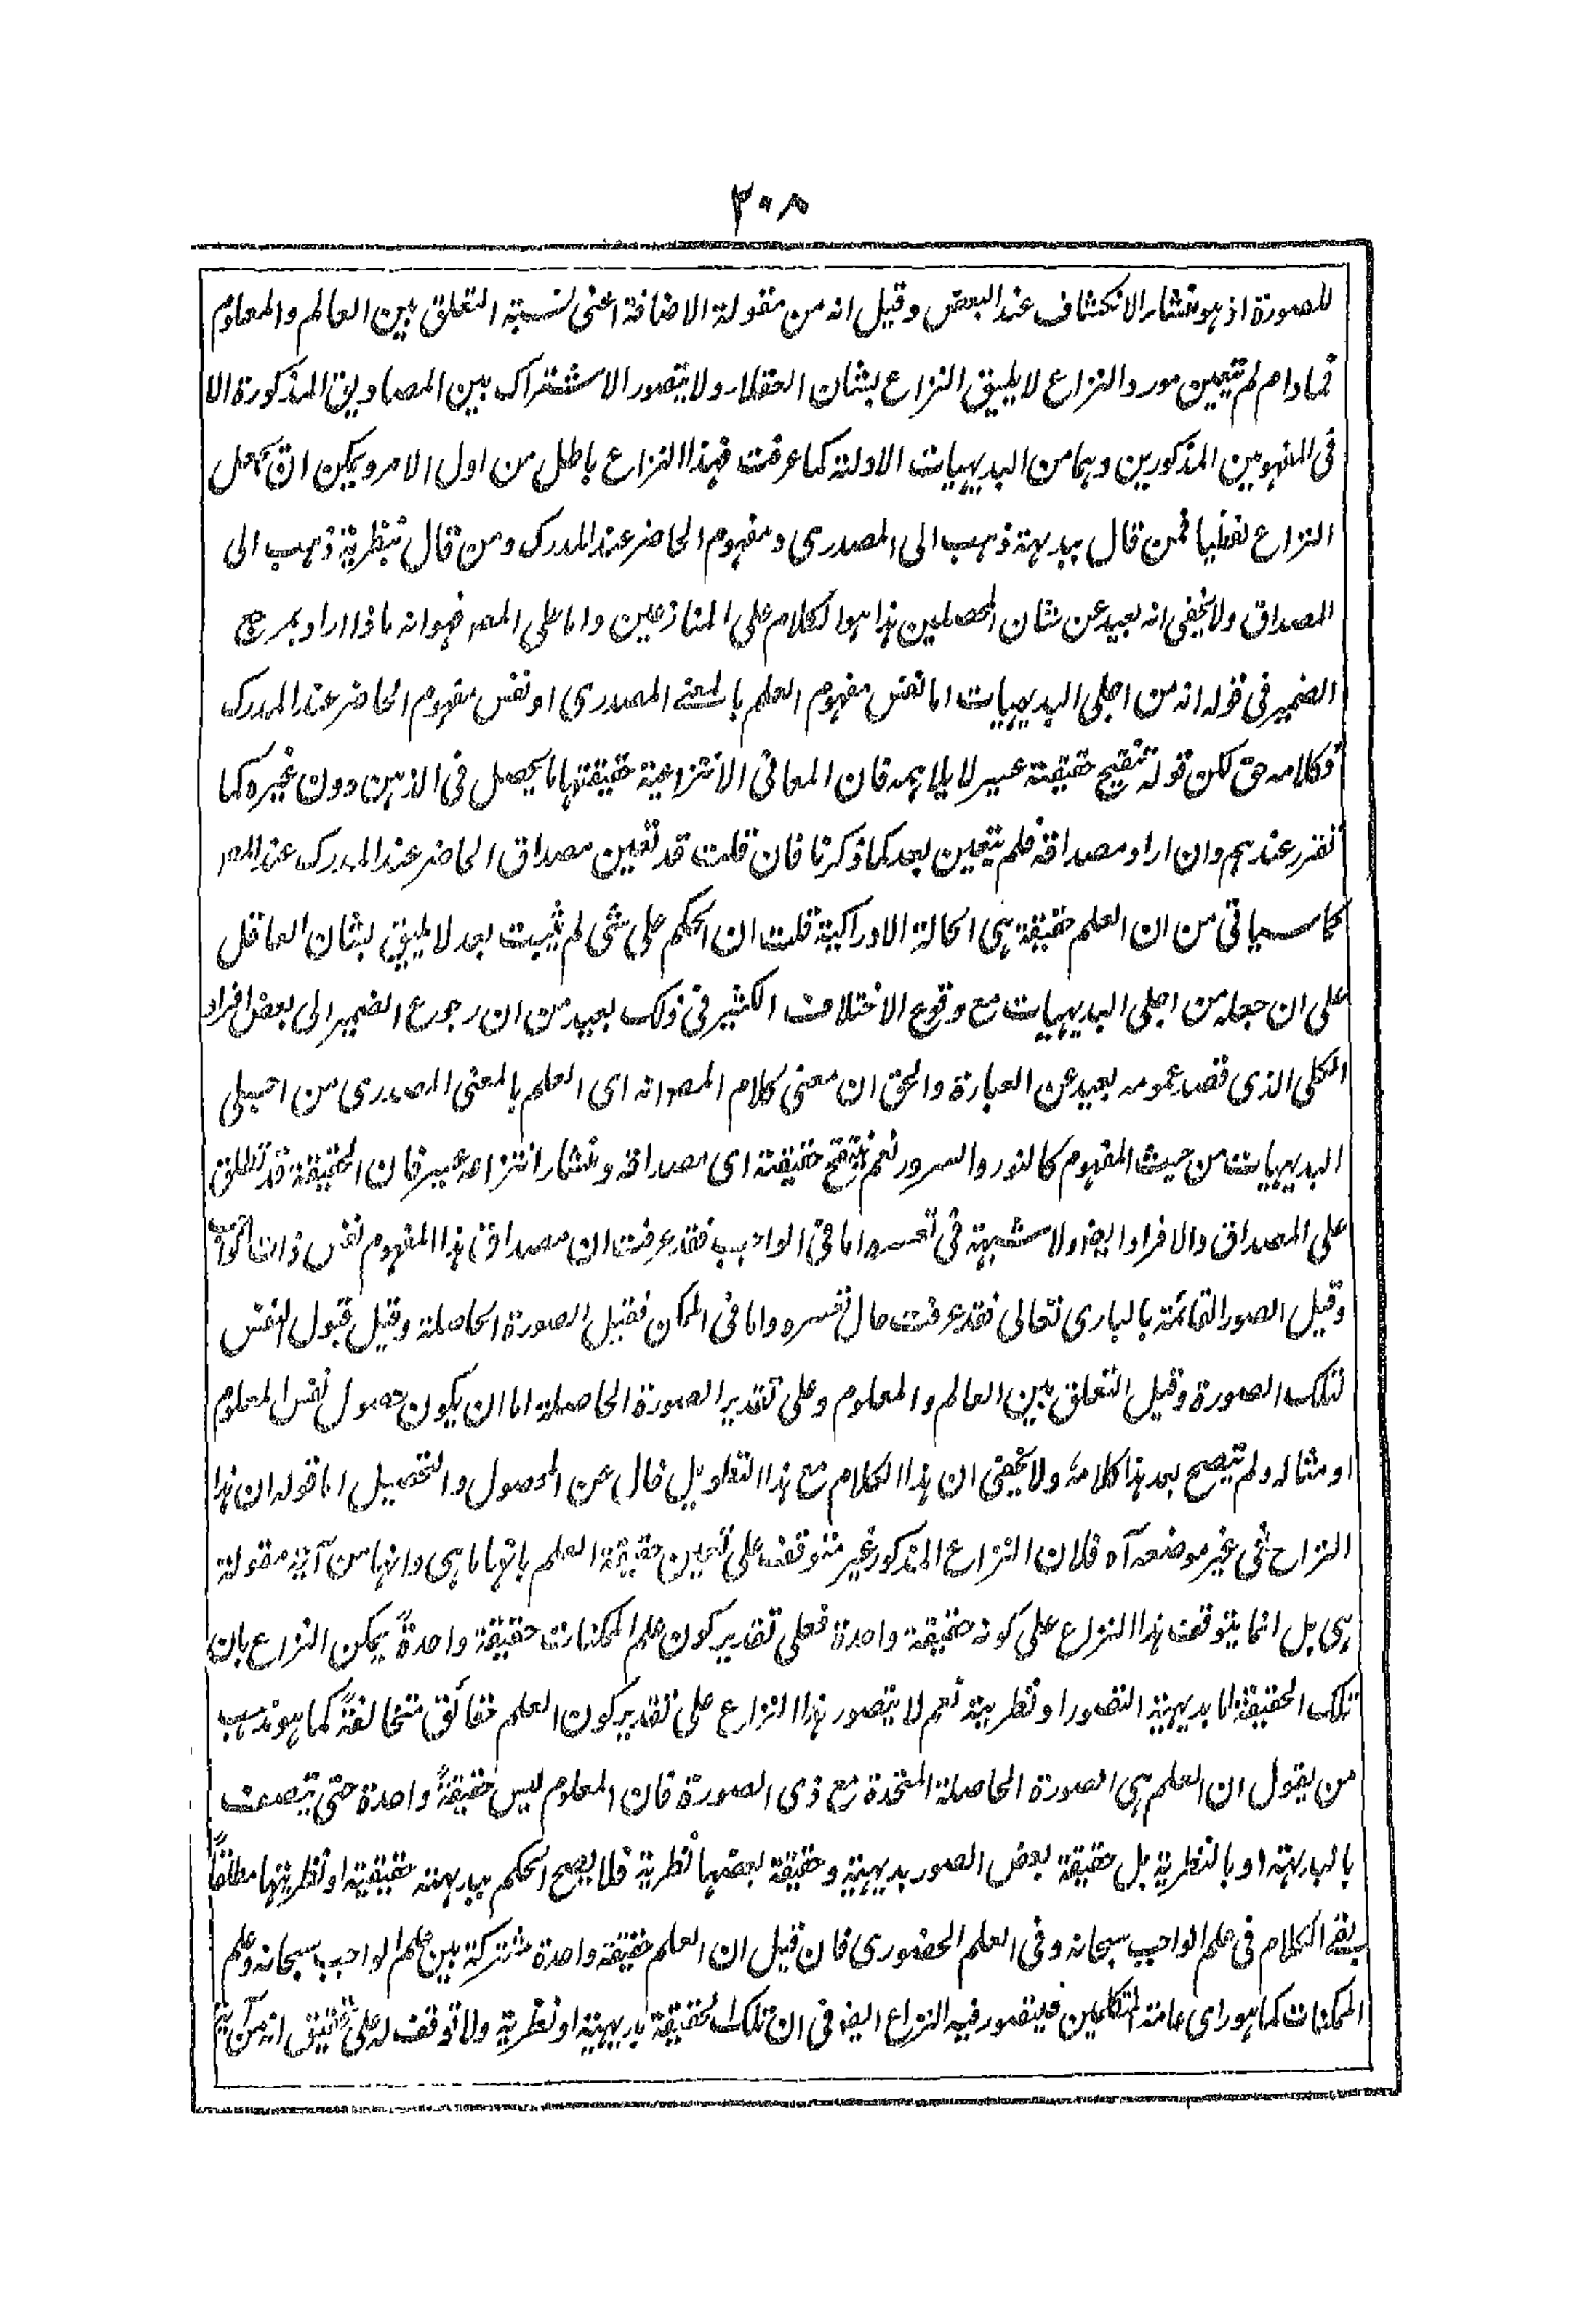 ٣٠٨
للصورة اذ هو منشأ الانكشاف عند البعض وقيل انه من مقولة الاضافة اعنى نسبة التعلق بين العالم والمعلوم
فما دام لم يتعين مورد النزاع لا يليق النزاع بشان العقلاء ولا يتصور الاشتراك بين المصاديق المذكورة الا
فى المفهومين المذكورين وهما من البديهيات الاولية كما عرفت فهذا النزاع باطل من اول الامر ويمكن ان يجعل
النزاع لفظيا فمن قال ببديهته ذهب الى المصدرى ومفهوم الحاضر عند المدرك ومن قال بنظريته ذهب الى
المصداق ولا يخفى انه بعيد عن شان المحصلين هذا هو الكلام على المتنازعين واما على المصر فهو انه ماذا اراد بمرجع
الضمير فى قوله انه من اجلى البديهيات اما نفس مفهوم العلم بالمعنى المصدرى او نفس مفهوم الحاضر عند المدرك
فكلامه حق لكن قوله تنقيح حقيقته عسير لا يلايمه فان المعانى الانتزاعية حقيقتها ما يحصل فى الاذهن دون غيره كما
تقرر عندهم وان اراد مصداقه فلم يتعين بعد كما ذكرنا فان قلت قد تعين مصداق الحاضر عند المدرك عند المصر
كما سياتى من ان العلم حقيقة هى الحالة الادراكية قلت ان الحكم على شئ لم يثبت بعد لا يليق بشان العاقل
على ان جعله من اجلى البديهيات مع وقوع الاختلاف الكثير فى ذلك بعيد من ان رجوع الضمير الى بعض افراد
الكلى الذى قصد عمومه بعيد عن العبارة والحق ان معنى كلام المصر انه اى العلم بالمعنى المصدرى من اجلى
البديهيات من حيث المفهوم كالنور والسرور نعم تنقيح حقيقته اى مصداقه ومنشأ انتزاعه عسير فان الحقيقة قد تطلق
على المصداق والافراد ايضا ولا شبهة فى تعسره اما فى الواجب فقد عرفت ان مصداق هذا المفهوم نفس ذات
وقيل الصور القائمة بالبارى تعالى فقد عرفت حال تعسره واما فى الممكن فقيل الصورة الحاصلة وقيل قبول النفس
لتلك الصورة وقيل التعلق بين العالم والمعلوم وعلى تقدير الصورة الحاصلة اما ان يكون حصول نفس المعلوم
او مثاله ولم يتضح بعد هذا كلامه ولا يخفى ان هذا الكلام مع هذا التطويل خال عن المحصول والتحصيل اما قوله ان هذا
النزاع فى غير موضعه آه فلان النزاع المذكور غير متوقف على تعيين حقيقة العلم بانها ما هى وانها من آية مقولة
هى بل انما يتوقف هذا النزاع على كونه حقيقة واحدة فعلى تقدير كون علم الممكنات حقيقة واحدةً يمكن النزاع بان
تلك الحقيقة اما بديهية التصور او نظرية نعم لا يتصور هذا النزاع على تقدير كون العلم حقائق متخالفةً كما هو مذهب
من يقول ان العلم هى الصورة الحاصلة المتحدة مع ذى الصورة فان المعلوم ليس حقيقةً واحدة حتى يتصف
بالبداهة او بالنظرية بل حقيقة بعض الصور بديهية وحقيقة بعضها نظرية فلا يصح الحكم ببداهته حقيقية او نظريتها مطلقاً
بقى الكلام فى علم الواجب سبحانه وفى العلم الحضورى فان قيل ان العلم حقيقة واحدة مشتركة بين علم الواجب سبحانه وعلم
الممكنات كما هو راى عامة المتكلمين فيتصور فيه النزاع ايضا فى ان تلك الحقيقة بديهية او نظرية ولا توقف له على انه من آية